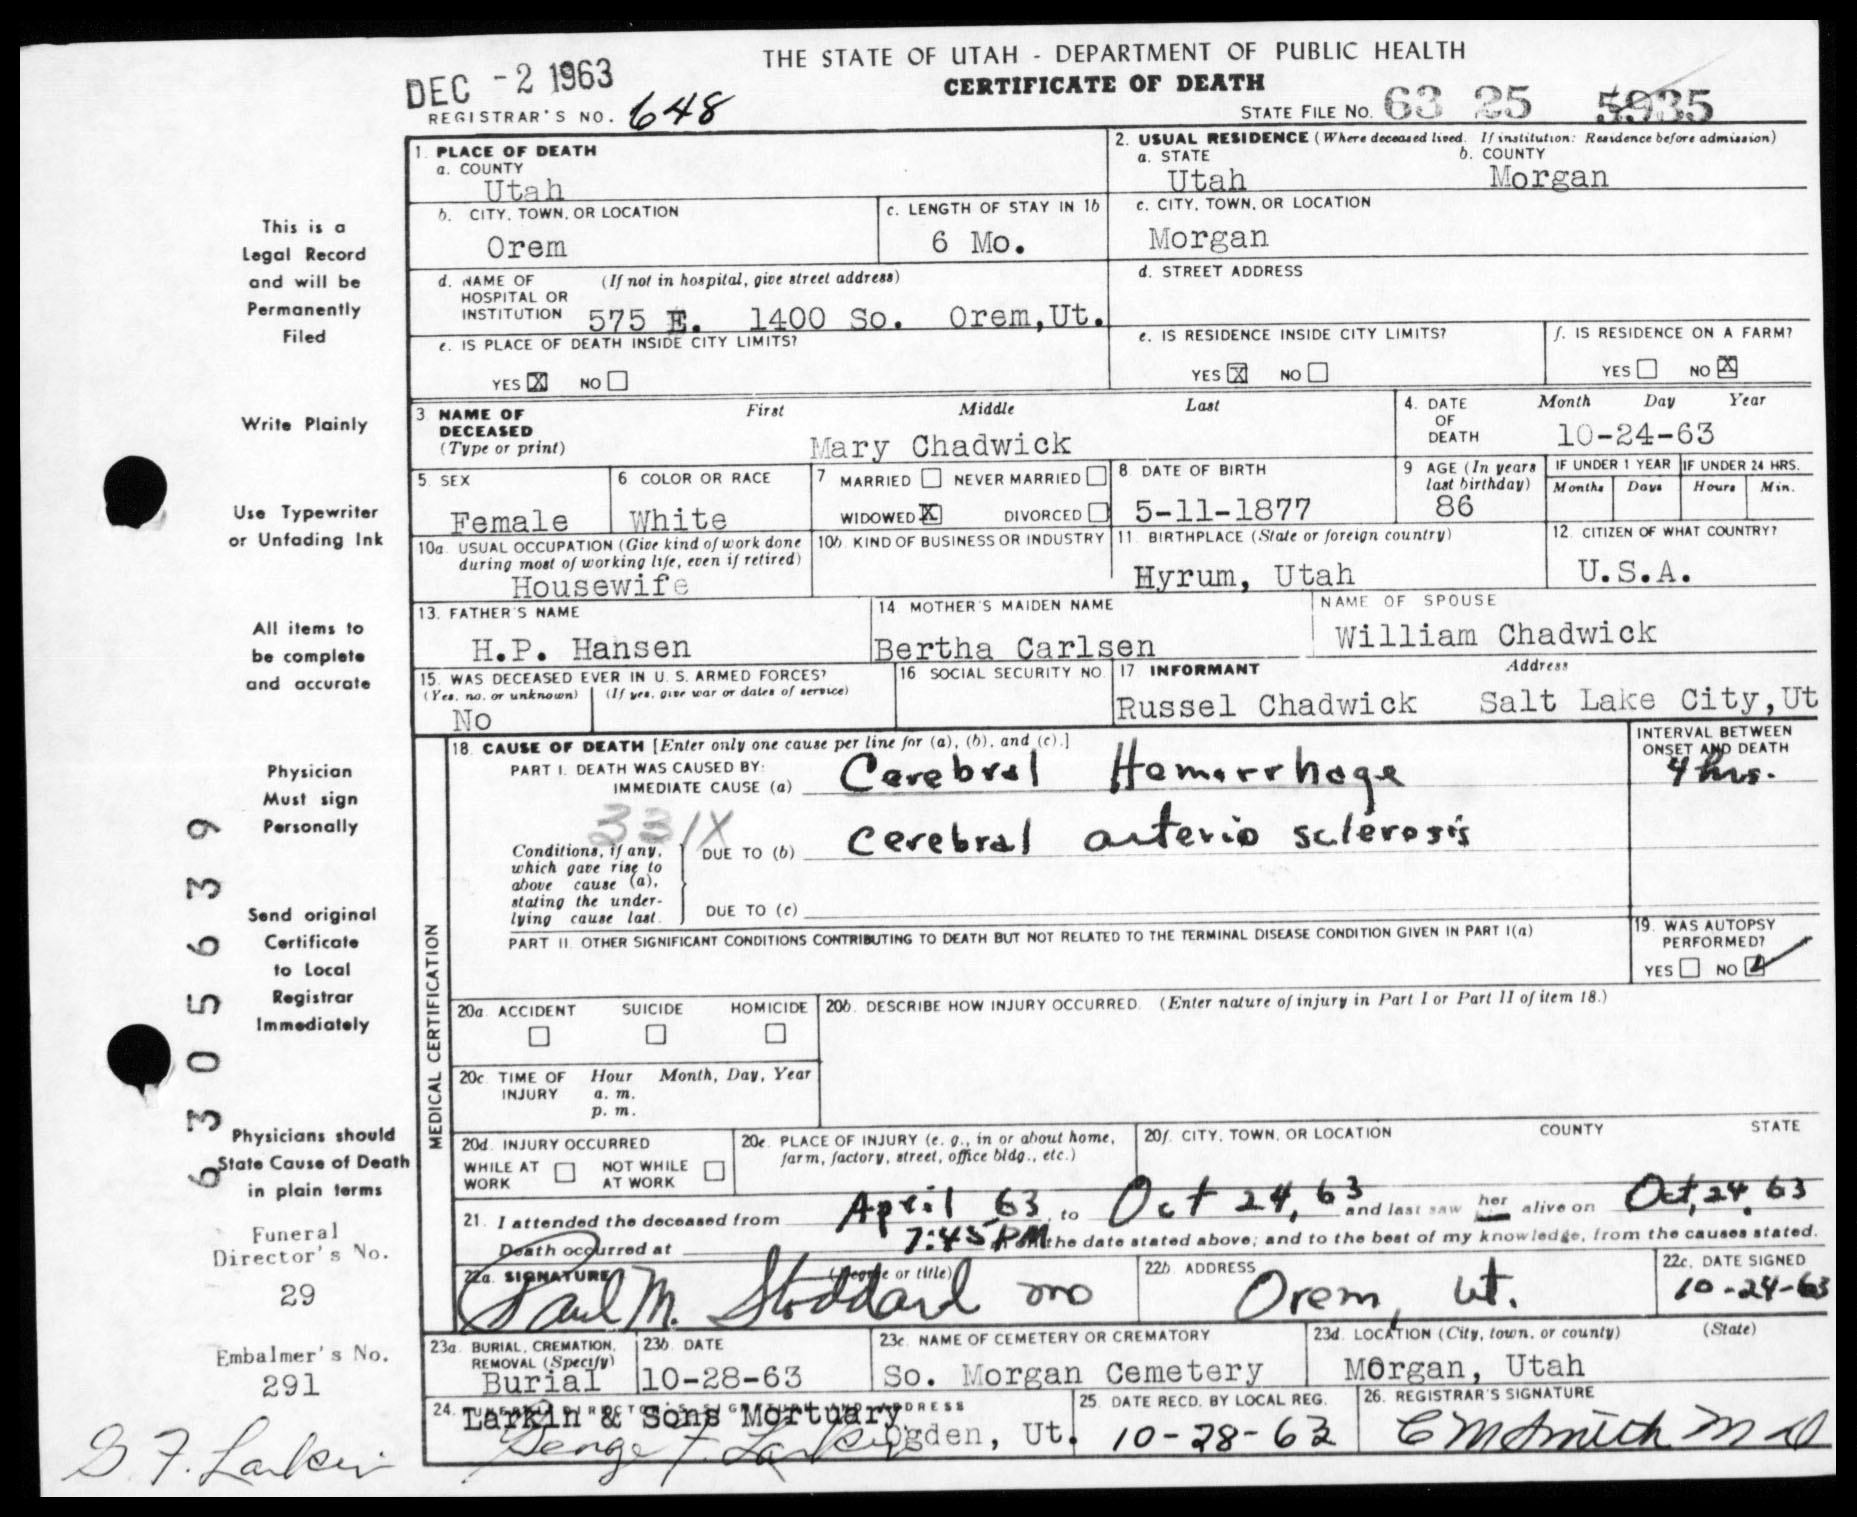 THE STATE OF UTAH - DEPARTMENT OF PUBLIC HEALTH
CERTIFICATE OF DEATH
DEC -2 1963
REGISTRAR'S NO. 648
STATE FILE NO. 63 25 5935
This is a
Legal Record
and will be
Permanently
Filed
Write Plainly
Use Typewriter
or Unfading Ink
All items to
be complete
and accurate
Physician
Must sign
Personally
Send original
Certificate
to Local
Registrar
Immediately
Physicians should
State Cause of Death
in plain terms
Funeral
Director's No.
29
Embalmer's No.
291
G. F. Larkin
6305639
1. PLACE OF DEATH
a. COUNTY
Utah
b. CITY, TOWN, OR LOCATION
Orem
c. LENGTH OF STAY IN 1b
6 Mo.
d. NAME OF HOSPITAL OR INSTITUTION (If not in hospital, give street address)
575 E. 1400 So. Orem,Ut.
e. IS PLACE OF DEATH INSIDE CITY LIMITS?
YES X NO
2. USUAL RESIDENCE (Where deceased lived. If institution: Residence before admission)
a. STATE
Utah
b. COUNTY
Morgan
c. CITY, TOWN, OR LOCATION
Morgan
d. STREET ADDRESS
e. IS RESIDENCE INSIDE CITY LIMITS?
YES X NO
f. IS RESIDENCE ON A FARM?
YES NO X
3. NAME OF DECEASED (Type or print)
First Middle Last
Mary Chadwick
4. DATE OF DEATH
Month Day Year
10-24-63
5. SEX
Female
6 COLOR OR RACE
White
7 MARRIED NEVER MARRIED
WIDOWED X DIVORCED
8. DATE OF BIRTH
5-11-1877
9 AGE (In years last birthday)
86
IF UNDER 1 YEAR
Months Days
IF UNDER 24 HRS.
Hours Min.
10a. USUAL OCCUPATION (Give kind of work done during most of working life, even if retired)
Housewife
10b. KIND OF BUSINESS OR INDUSTRY
11. BIRTHPLACE (State or foreign country)
Hyrum, Utah
12. CITIZEN OF WHAT COUNTRY?
U.S.A.
13. FATHER'S NAME
H.P. Hansen
14. MOTHER'S MAIDEN NAME
Bertha Carlsen
NAME OF SPOUSE
William Chadwick
15. WAS DECEASED EVER IN U. S. ARMED FORCES?
(Yes, no, or unknown) (If yes, give war or dates of service)
No
16 SOCIAL SECURITY NO.
17 INFORMANT Address
Russel Chadwick Salt Lake City,Ut
MEDICAL CERTIFICATION
18. CAUSE OF DEATH [Enter only one cause per line for (a), (b), and (c).]
PART I. DEATH WAS CAUSED BY:
IMMEDIATE CAUSE (a) Cerebral Hemorrhage
INTERVAL BETWEEN ONSET AND DEATH
4 hrs.
331X
Conditions, if any, which gave rise to above cause (a), stating the underlying cause last.
DUE TO (b) Cerebral arterio sclerosis
DUE TO (c)
PART II. OTHER SIGNIFICANT CONDITIONS CONTRIBUTING TO DEATH BUT NOT RELATED TO THE TERMINAL DISEASE CONDITION GIVEN IN PART I(a)
19. WAS AUTOPSY PERFORMED?
YES NO
20a. ACCIDENT SUICIDE HOMICIDE
20b. DESCRIBE HOW INJURY OCCURRED. (Enter nature of injury in Part I or Part II of item 18.)
20c. TIME OF INJURY Hour Month, Day, Year
a. m.
p. m.
20d. INJURY OCCURRED
WHILE AT WORK NOT WHILE AT WORK
20e. PLACE OF INJURY (e. g., in or about home, farm, factory, street, office bldg., etc.)
20f. CITY, TOWN, OR LOCATION COUNTY STATE
21. I attended the deceased from April 63, to Oct 24, 63 and last saw her alive on Oct, 24, 63
Death occurred at 7:45 PM the date stated above; and to the best of my knowledge, from the causes stated.
22a. SIGNATURE (Degree or title)
Paul M. Stoddard MD
22b. ADDRESS
Orem, Ut.
22c. DATE SIGNED
10-24-63
23a. BURIAL, CREMATION, REMOVAL (Specify)
Burial
23b. DATE
10-28-63
23c. NAME OF CEMETERY OR CREMATORY
So. Morgan Cemetery
23d. LOCATION (City, town, or county) (State)
Morgan, Utah
24. FUNERAL DIRECTOR'S SIGNATURE AND ADDRESS
Larkin & Sons Mortuary
George F. Larkin
Ogden, Ut.
25. DATE RECD. BY LOCAL REG.
10-28-63
26. REGISTRAR'S SIGNATURE
C M Smith M D